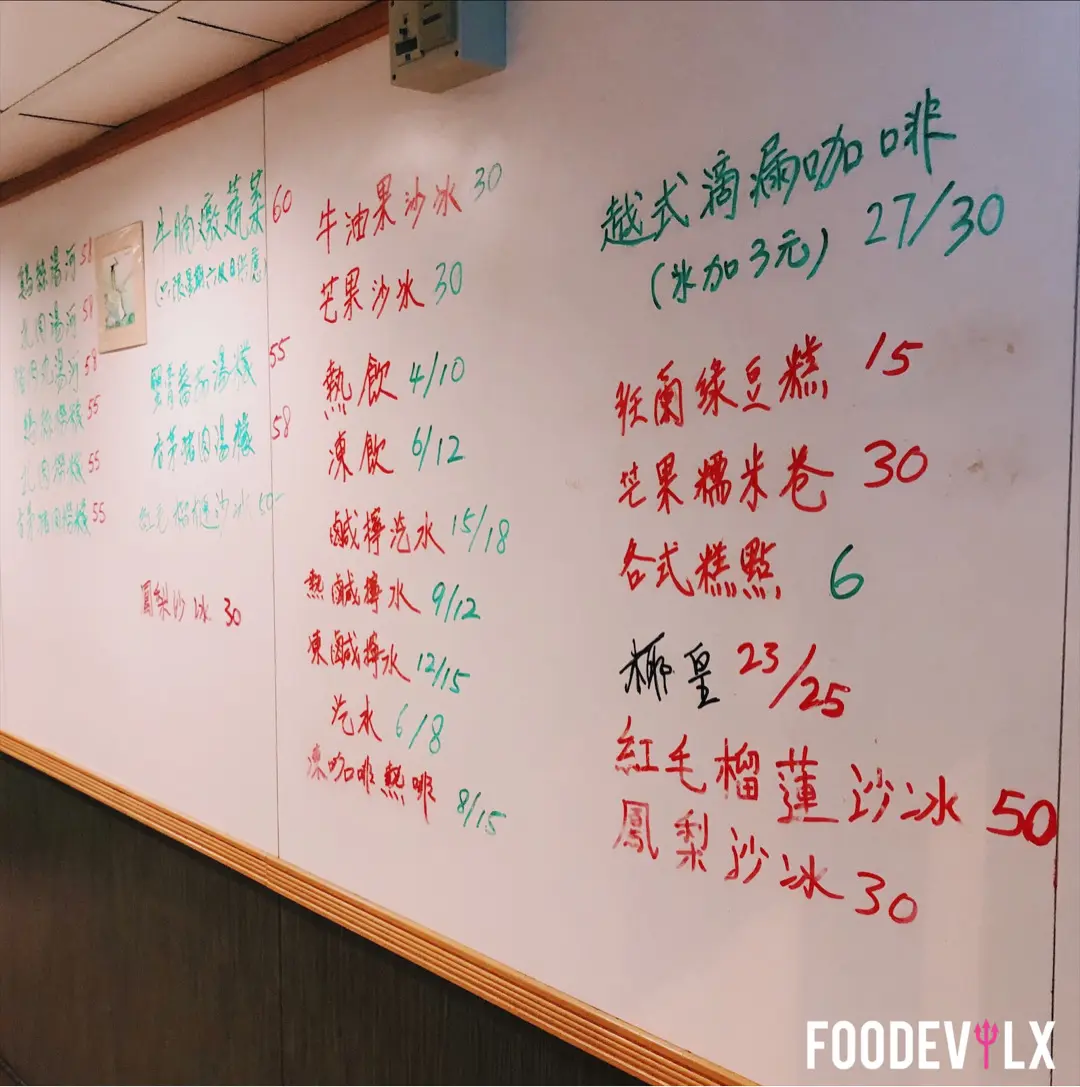 湯河 58
肉湯河 58
湯河 58
55
55
55
牛腩燉蔬菜 60
(只限星期六及日供應)
蟹膏蕃茄湯檬 55
香茅豬肉湯檬 58
紅毛榴槤沙冰 50
鳳梨沙冰 30
牛油果沙冰 30
芒果沙冰 30
熱飲 4/10
凍飲 6/12
鹹檸汽水 15/18
熱鹹檸水 9/12
凍鹹檸水 12/15
汽水 6/8
凍咖啡熱啡 8/15
越式滴漏咖啡 27/30
(冰加3元)
班蘭綠豆糕 15
芒果糯米卷 30
各式糕點 6
椰皇 23/25
紅毛榴蓮沙冰 50
鳳梨沙冰 30
FOODEVILX